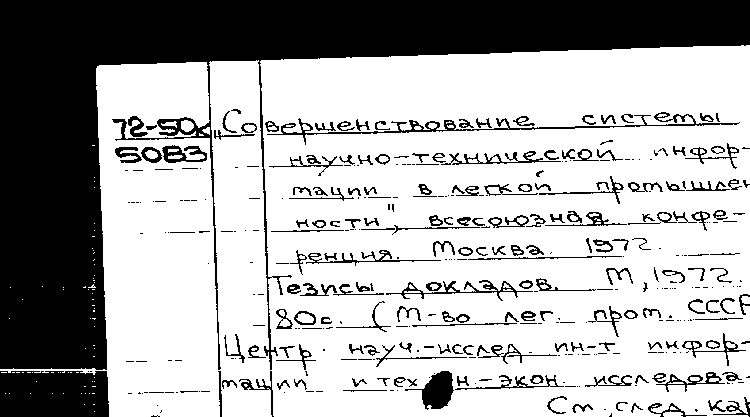 72-50к „Совершенствование системы
5083 научно-технической инфор-
мации в легкой промышлен
ности", всесоюзная конфе-
ренция. Москва. 1972.
Тезисы докладов. М, 1972.
80с. (М-во лег. пром. СССР
Центр. науч.-исслед ин-т инфор-
мации и тех н.-экон. исследова-
См. след. кар